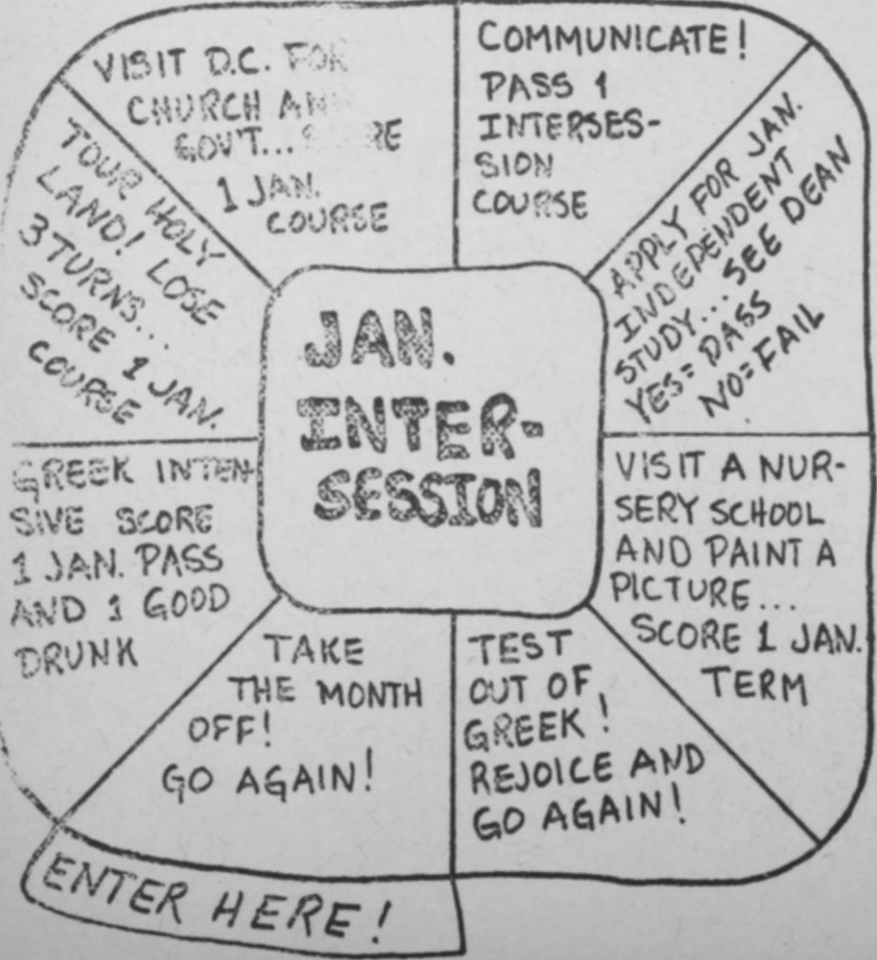 VISIT D.C. FOR
CHURCH AND
GOV'T... SCORE
1 JAN.
COURSE
COMMUNICATE!
PASS 1
INTERSES-
SION
COURSE
APPLY FOR JAN.
INDEPENDENT
STUDY... SEE DEAN
YES = PASS
NO = FAIL
VISIT A NUR-
SERY SCHOOL
AND PAINT A
PICTURE...
SCORE 1 JAN.
TERM
TEST
OUT OF
GREEK!
REJOICE AND
GO AGAIN!
TAKE
THE MONTH
OFF!
GO AGAIN!
GREEK INTEN-
SIVE SCORE
1 JAN. PASS
AND 1 GOOD
DRUNK
TOUR HOLY
LAND! LOSE
3 TURNS...
SCORE 1 JAN.
COURSE
JAN.
INTER-
SESSION
ENTER HERE!